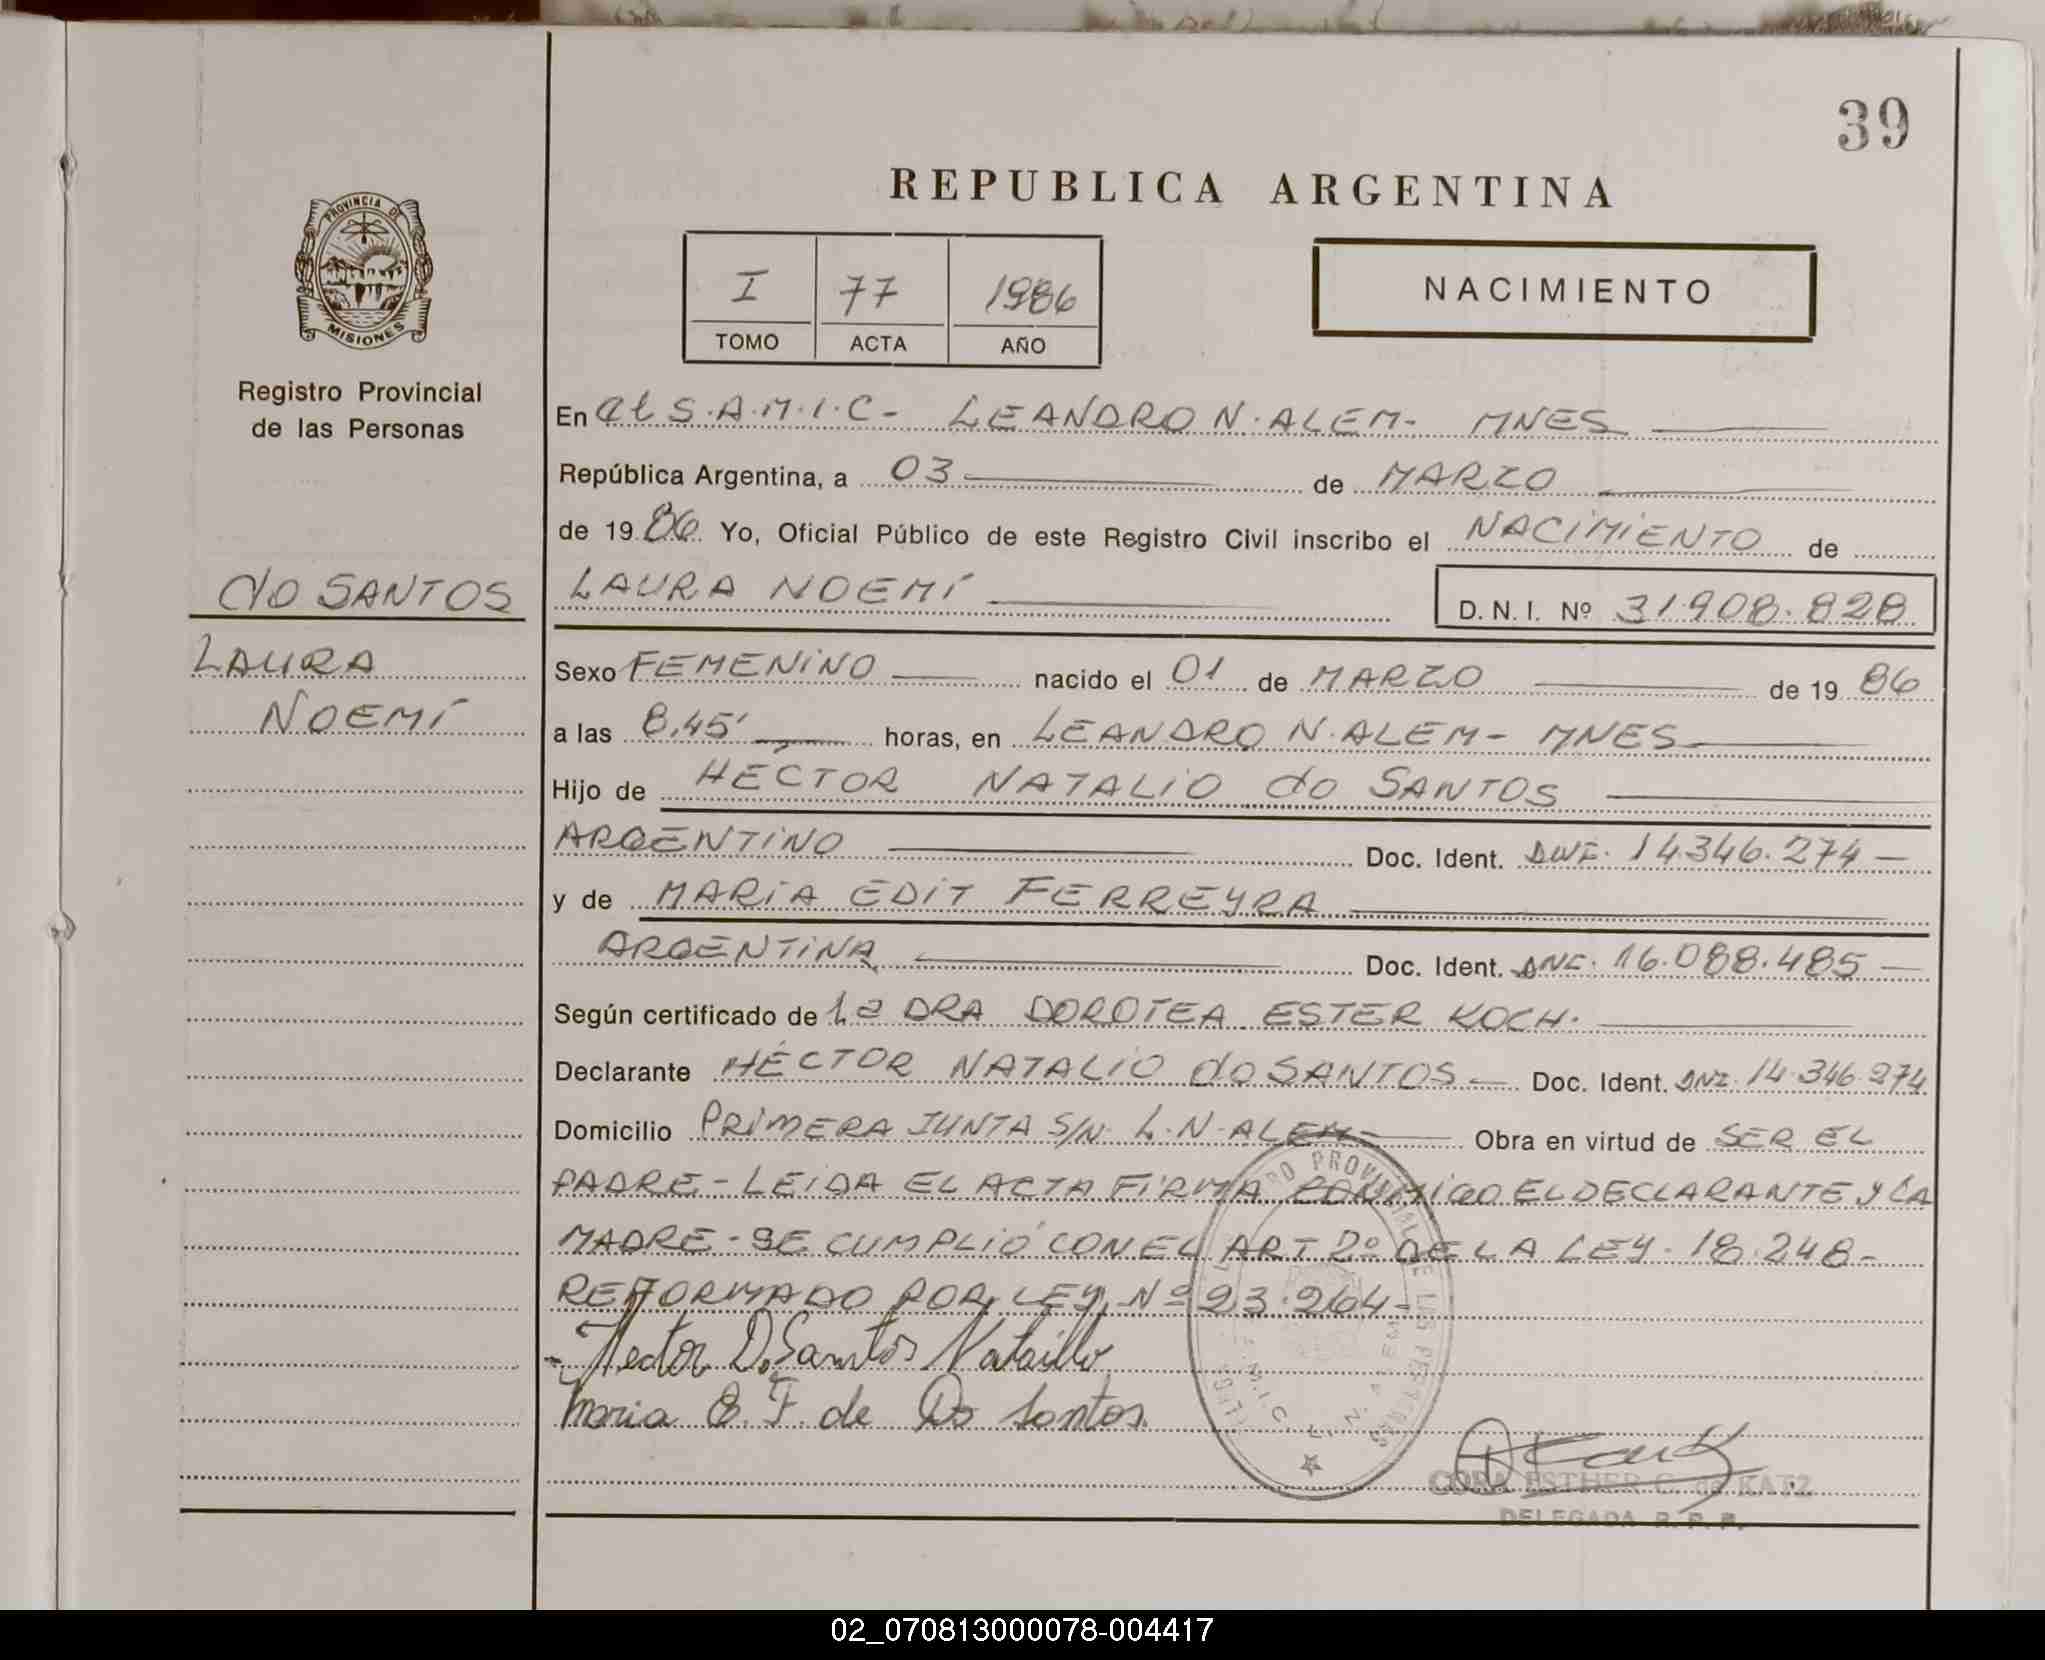 39
REPUBLICA ARGENTINA
PROVINCIA DE
MISIONES
I 77 1986
TOMO ACTA AÑO
NACIMIENTO
Registro Provincial
de las Personas
En el S.A.M.I.C- LEANDRO N. ALEM- MNES
República Argentina, a 03 de MARZO
de 1986 Yo, Oficial Público de este Registro Civil inscribo el NACIMIENTO de
do SANTOS LAURA NOEMÍ D.N.I. Nº 31.908.828
LAURA Sexo FEMENINO nacido el 01 de MARZO de 1986
NOEMÍ a las 8,45' horas, en LEANDRO N. ALEM- MNES
Hijo de HECTOR NATALIO do SANTOS
ARGENTINO Doc. Ident. 14.346.274-
y de MARIA EDIT FERREYRA
ARGENTINA Doc. Ident. 16.088.485-
Según certificado de La DRA DOROTEA ESTER KOCH.
Declarante HÉCTOR NATALIO do SANTOS- Doc. Ident. DNI. 14.346.274
Domicilio PRIMERA JUNTA S/N. L.N.ALEM- Obra en virtud de SER EL
PADRE- LEIDA EL ACTA FIRMA CONMIGO EL DECLARANTE y LA
MADRE- SE CUMPLIÓ CON EL ART 2º DE LA LEY. 18.248-
REFORMADO POR LEY Nº 23.264-
Hector D. Santos Natalio
Maria E. F. de Do Santos
CORA ESTHER C. de KATZ
DELEGADA R. P. P.
02_070813000078-004417